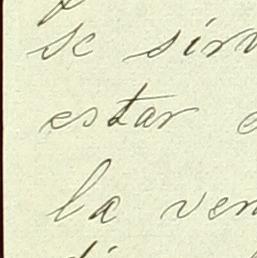 se sirv
estar e
la ven